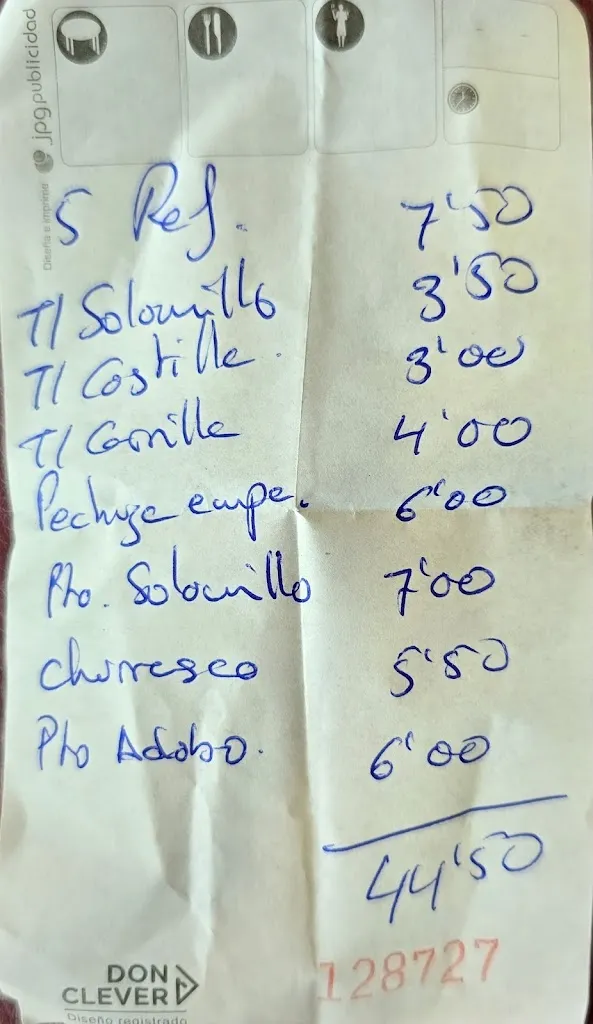 jpgpublicidad
Diseña e imprime
5 Ref. 7'50
T/ Solomillo 3'50
T/ Costilla. 3'00
T/ Carrilla 4'00
Pechuga empa. 6'00
Pto. Solomillo 7'00
Churrasco 5'50
Pto Adobo. 6'00
44'50
128727
DON
CLEVER
Diseño registrado